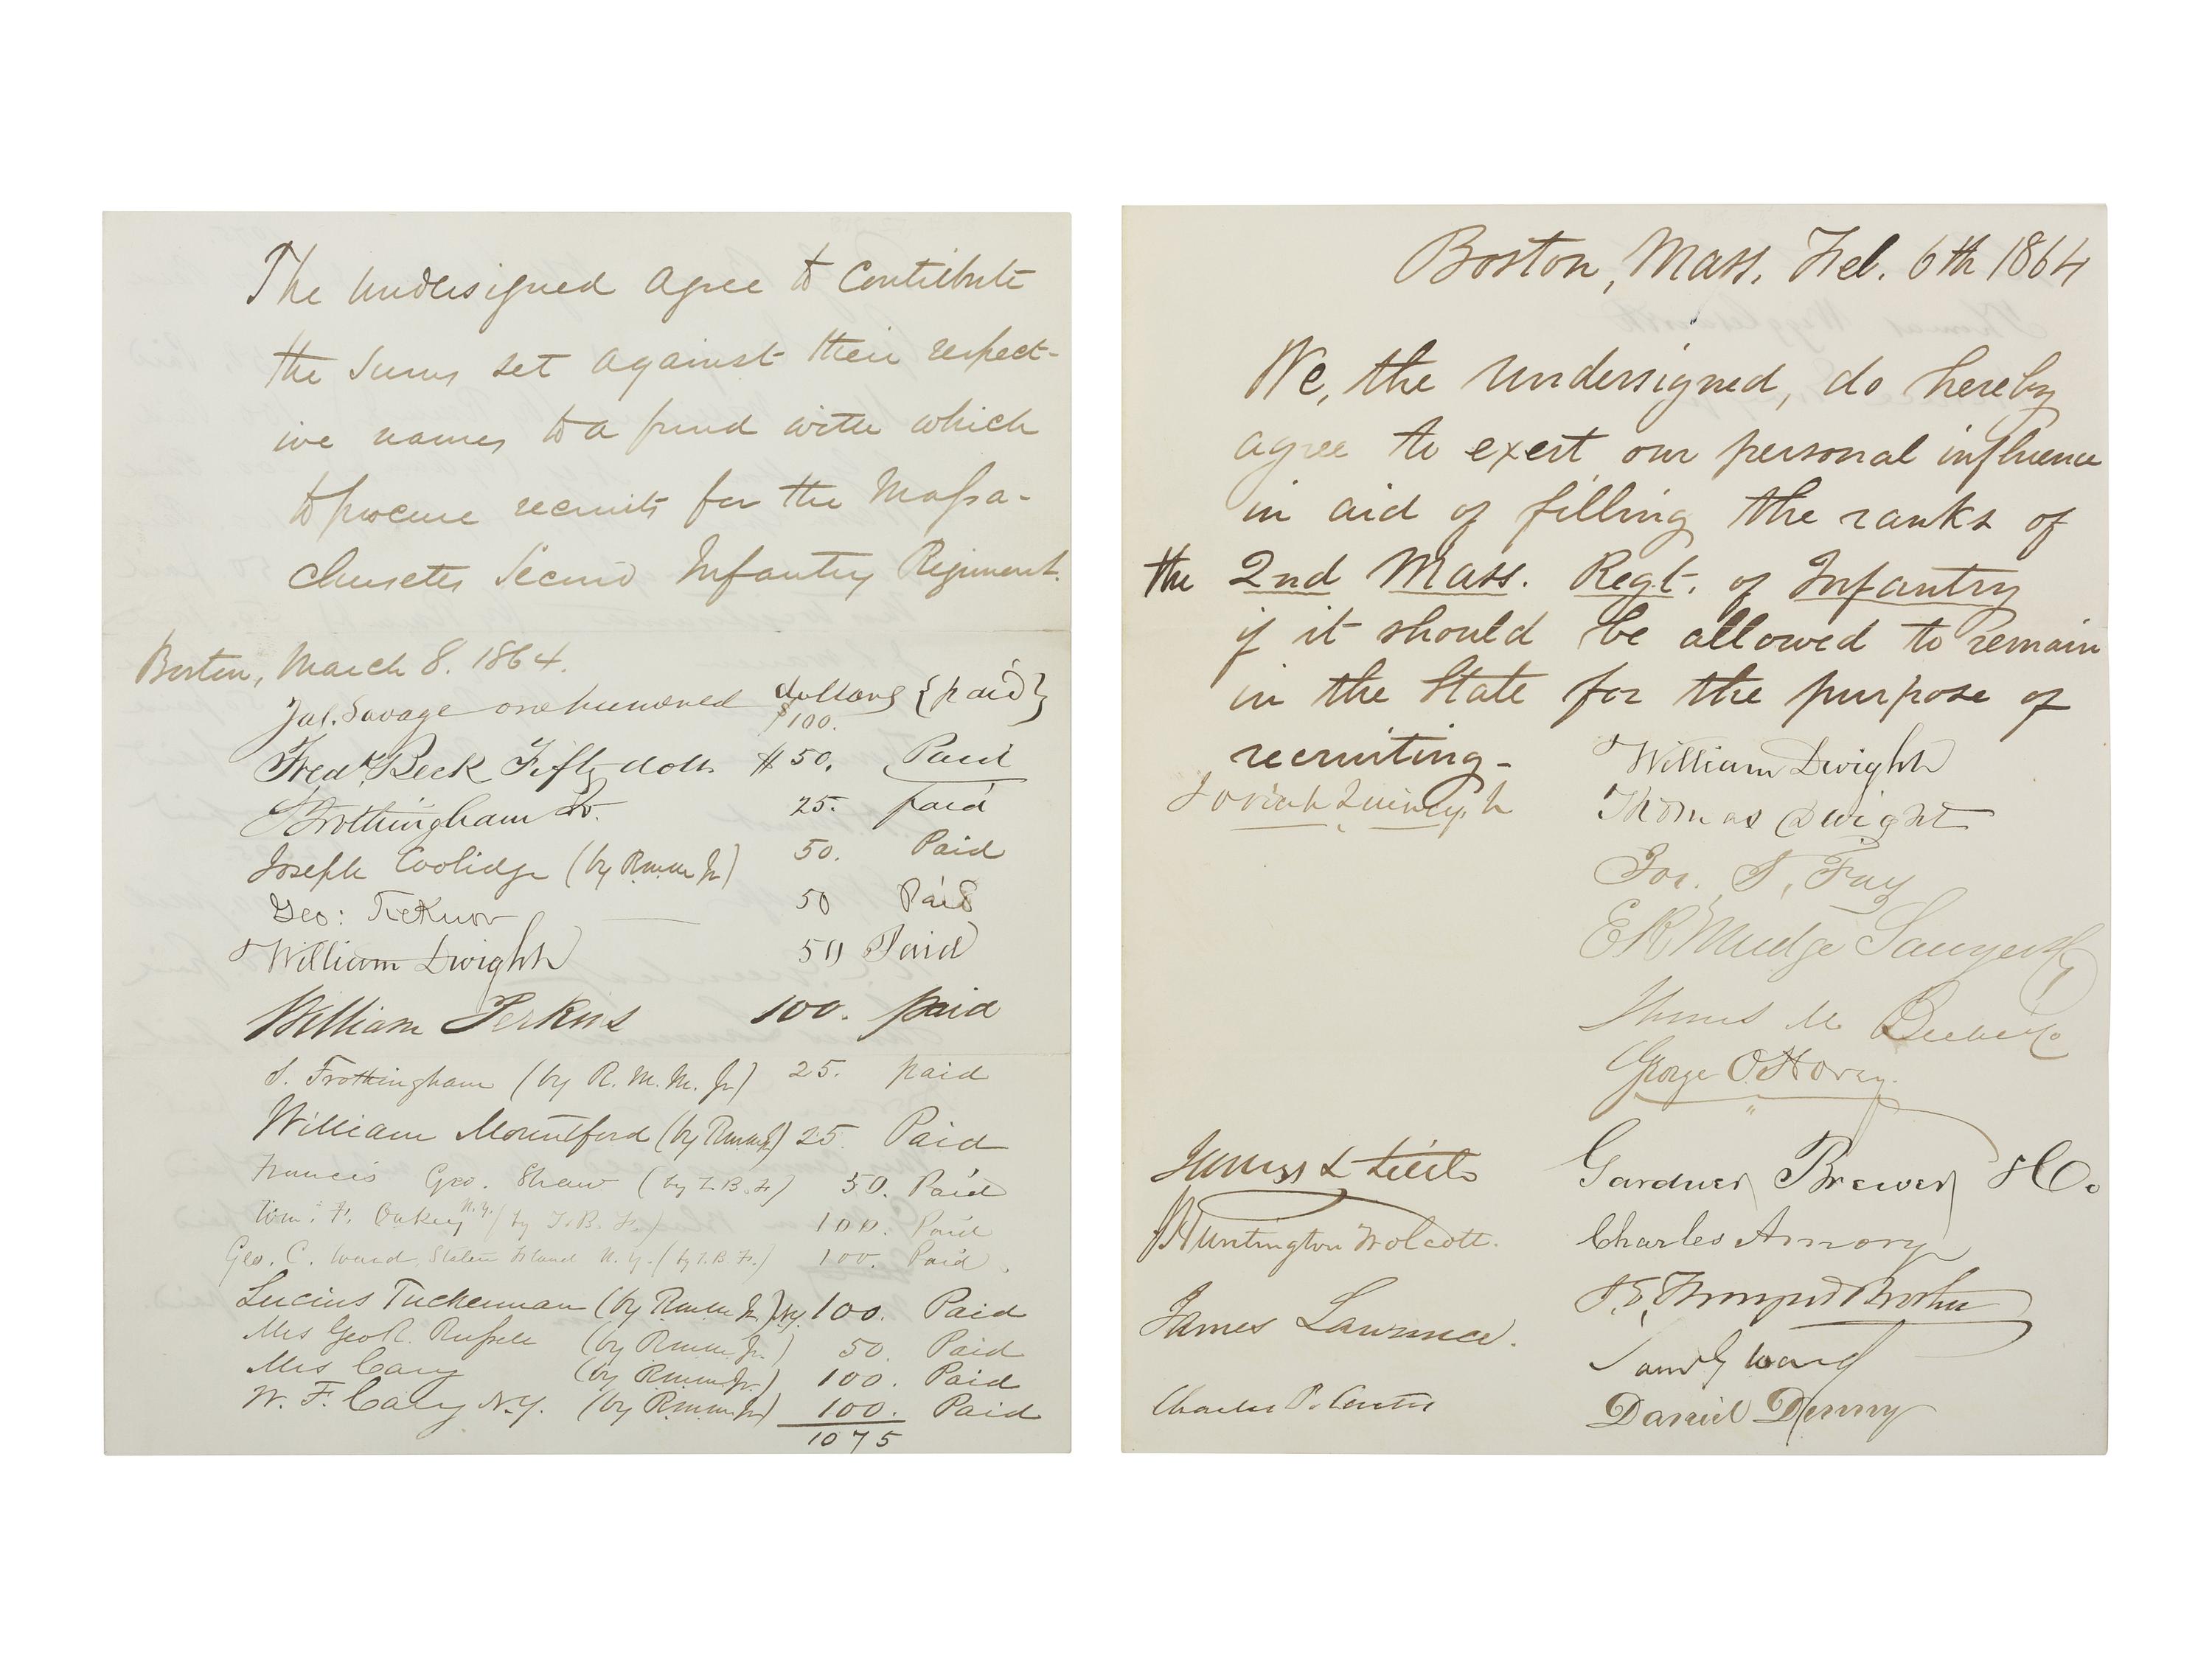 The undersigned agree to contribute
the sums set against their respect-
ive names to a fund with which
to procure recruits for the Massa-
chusetts Second Infantry Regiment.
Boston, March 8. 1864.
Jas. Savage one hundred dollars {paid}
$100.
Fredk Beck Fifty dolls $50. Paid
Frothingham 25. paid
Joseph Coolidge (by RMM Jr) 50. Paid
Geo: Ticknor 50 Paid
William Dwight 50 Paid
William Perkins 100. paid
S. Frothingham (by R. M. M. Jr) 25. paid
William Mountford (by RMM Jr) 25 Paid
Francis Geo. Shaw (by 50. Paid
Wm. F. Oakey N.Y. (by 100. Paid
Geo. C. Ward Staten Island N.Y. (by 100. Paid
Lucius Tuckerman (by RMM Jr) N.Y. 100. Paid
Mrs Geo R. Russell (by RMM Jr.) 50. Paid
Mrs Cary (by RMM Jr.) 100. Paid
W. F. Cary N.Y. (by RMM Jr) 100. Paid
1075
Boston, Mass. Feb. 6th 1864
We, the undersigned, do hereby
agree to exert our personal influence
in aid of filling the ranks of
the 2nd Mass. Regt. of Infantry
if it should be allowed to remain
in the State for the purpose of
recruiting-
William Dwight
Josiah Quincy, Jr
Thomas Dwight
Jos. S. Fay
E R Mudge Sawyer & Co
George O Hovey.
James L Little
Gardner Brewer & Co.
J Huntington Wolcott.
Charles Amory
James Lawrence.
Ward
Charles P. Curtis
Daniel Denny